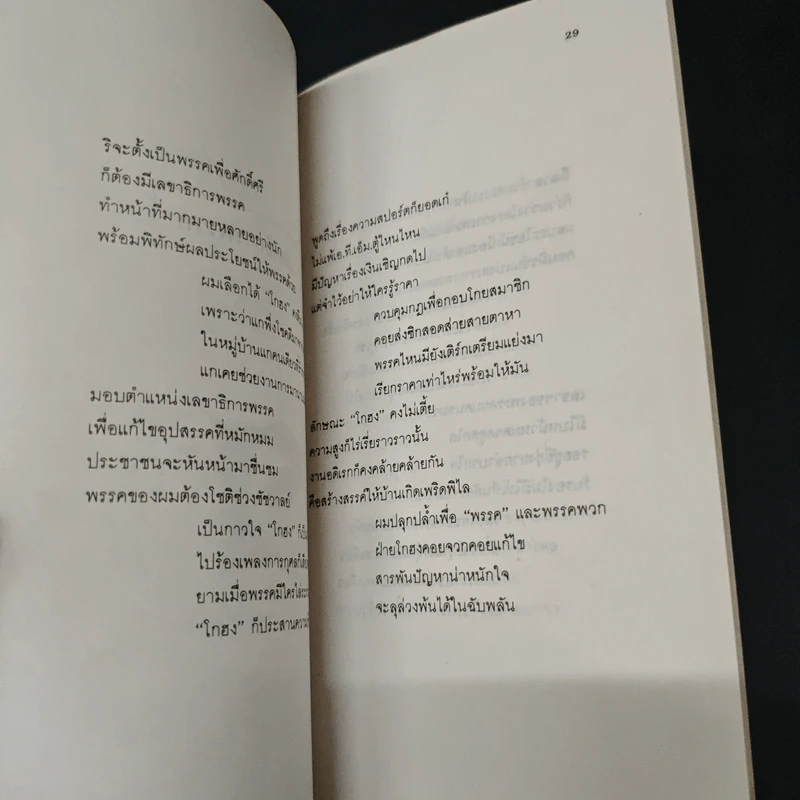 ริจะตั้งเป็นพรรคเพื่อศักดิ์ศรี
ก็ต้องมีเลขาธิการพรรค
ทำหน้าที่มากมายหลายอย่างนัก
พร้อมพิทักษ์ผลประโยชน์ให้พรรคด้วย
ผมเลือกได้ “โกฮง”
เพราะว่าแกพึ่งโชคดีมา
ในหมู่บ้านแกคนเดียว
แกเคยช่วยงานการมา
มอบตำแหน่งเลขาธิการพรรค
เพื่อแก้ไขอุปสรรคที่หมักหมม
ประชาชนจะหันหน้ามาชื่นชม
พรรคของผมต้องโชติช่วงชัชวาลย์
เป็นกาวใจ “โกฮง” ก็เป็น
ไปร้องเพลงการกุศลก็เคย
ยามเมื่อพรรคมีใคร
“โกฮง” ก็ประสานความ
29
พูดถึงเรื่องความสปอร์ตก็ยอดเก๋
ไม่แพ้เอ.ที.เอ็ม.ตู้ไหนไหน
มีปัญหาเรื่องเงินเชิญกดไป
แต่จำไว้อย่าให้ใครรู้ราคา
ควบคุมกฎเพื่อกอบโกยสมาชิก
คอยส่งซิกสอดส่ายสายตาหา
พรรคไหนมียังเติร์กเตรียมแย่งมา
เรียกราคาเท่าไหร่พร้อมให้มัน
ลักษณะ “โกฮง” คงไม่เตี้ย
ความสูงก็ไร่เรี่ยราวราวนั้น
งานอดิเรกก็คงคล้ายคล้ายกัน
คือสร้างสรรค์ให้บ้านเกิดเพริดพิไล
ผมปลุกปล้ำเพื่อ “พรรค” และพรรคพวก
ฝ่ายโกฮงคอยจวกคอยแก้ไข
สารพันปัญหาน่าหนักใจ
จะลุล่วงพ้นได้ในฉับพลัน